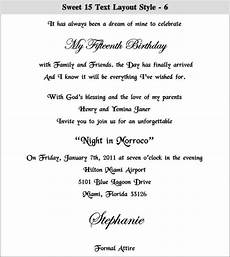 Sweet 15 Text Layout Style - 6
It has always been a dream of mine to celebrate
My Fifteenth Birthday
with Family and Friends. the Day has finally arrived
And I know it will be everything I've wished for.
With God's blessing and the love of my parents
Henry and Yemina Janer
Invite you to join us for an unforgettable
"Night in Morroco"
On Friday, January 7th, 2011 at seven o'clock in the evening
Hilton Miami Airport
5101 Blue Lagoon Drive
Miami, Florida 33126
Stephanie
Formal Attire